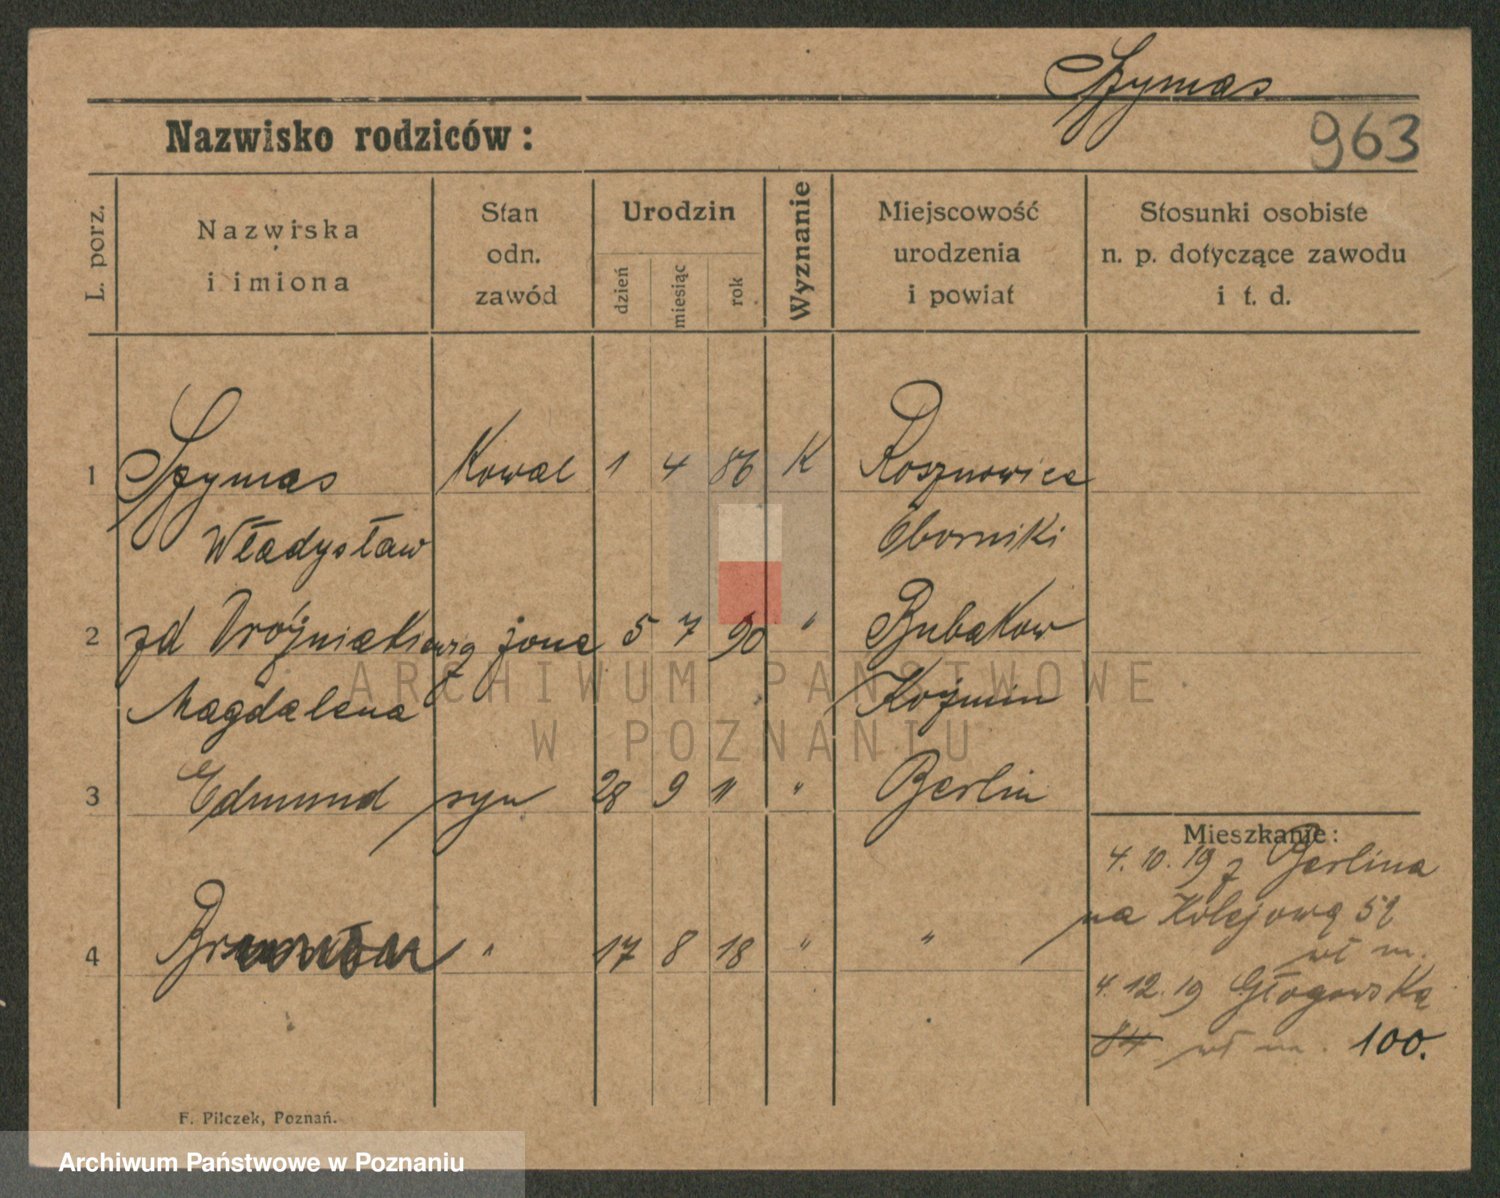 Szymas
Nazwisko rodziców:
963
L. porz.
Nazwiska
i imiona
Stan
odn.
zawód
Urodzin
dzień
miesiąc
rok
Wyznanie
Miejscowość
urodzenia
i powiat
Stosunki osobiste
n. p. dotyczące zawodu
i t. d.
1 Szymas Kowal 1 4 86 K Rosznowice
Władysław Oborniki
2 zd Dróżniakiewicz żona 5 7 90 "
Magdalena Koźmin
3 Edmund syn 28 9 11 " Berlin
Mieszkanie:
4. 10. 19 z Berlina
na Kolejową 52
wł m.
4 " 17 8 18 " "
4. 12. 19 Głogowską
84 wł m. 100.
F. Pilczek, Poznań.
ARCHIWUM PAŃSTWOWE
W POZNANIU
Archiwum Państwowe w Poznaniu